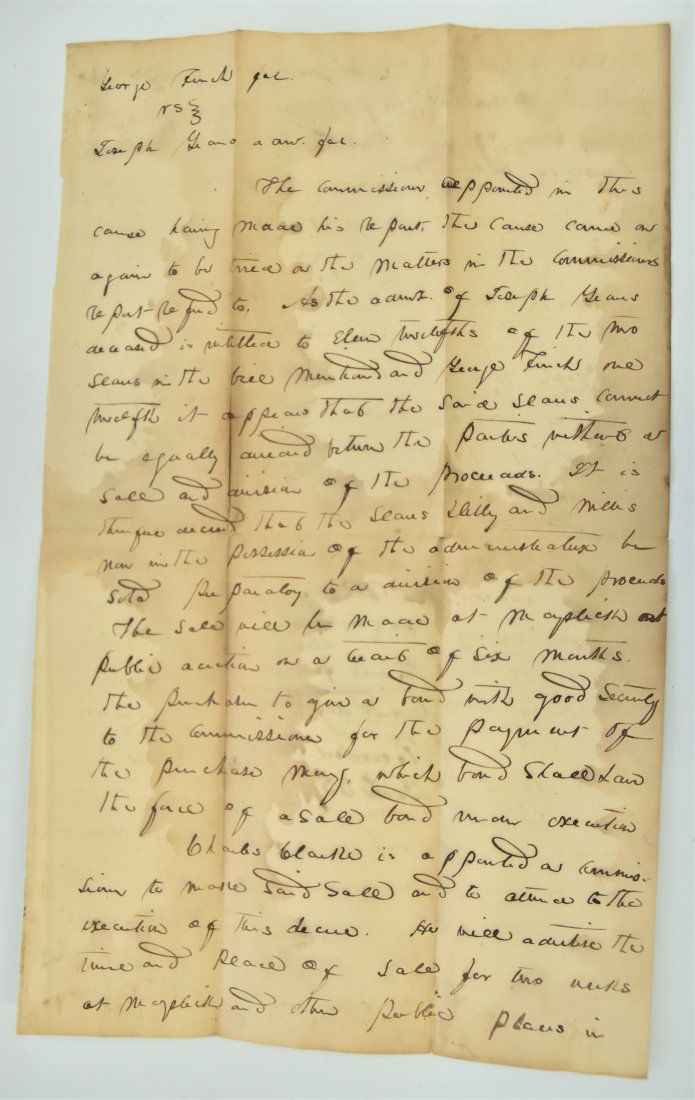 George Finch &c.
vs
Joseph Glaves adm. &c.
The commissioner appointed in this
cause having made his report, the cause came on
again to be tried on the matters in the commissioners
report refered to. As the admx. of Joseph Glaves
deceased is intitled to Eleven twelfths of the two
Slaves in the bill mentioned and George Finch one
twelfth it appears that the said Slaves cannot
be equally divided between the parties without a
Sale and division of the proceeds. It is
therefore decreed that the Slaves and Willis
now in the possession of the administratrix be
sold preparatory to a division of the proceeds
The Sale will be made at Mayslick at
public auction on a credit of Six Months.
the purchaser to give a bond with good Security
to the Commissioner for the payment of
the purchase money, which bond Shall have
the force of a sale bond under execution
Charles Clarke is appointed a commis-
sioner to make Said Sale and to attend to the
execution of this decree. He will advertise the
time and place of Sale for two weeks
at Mayslick and other public places in